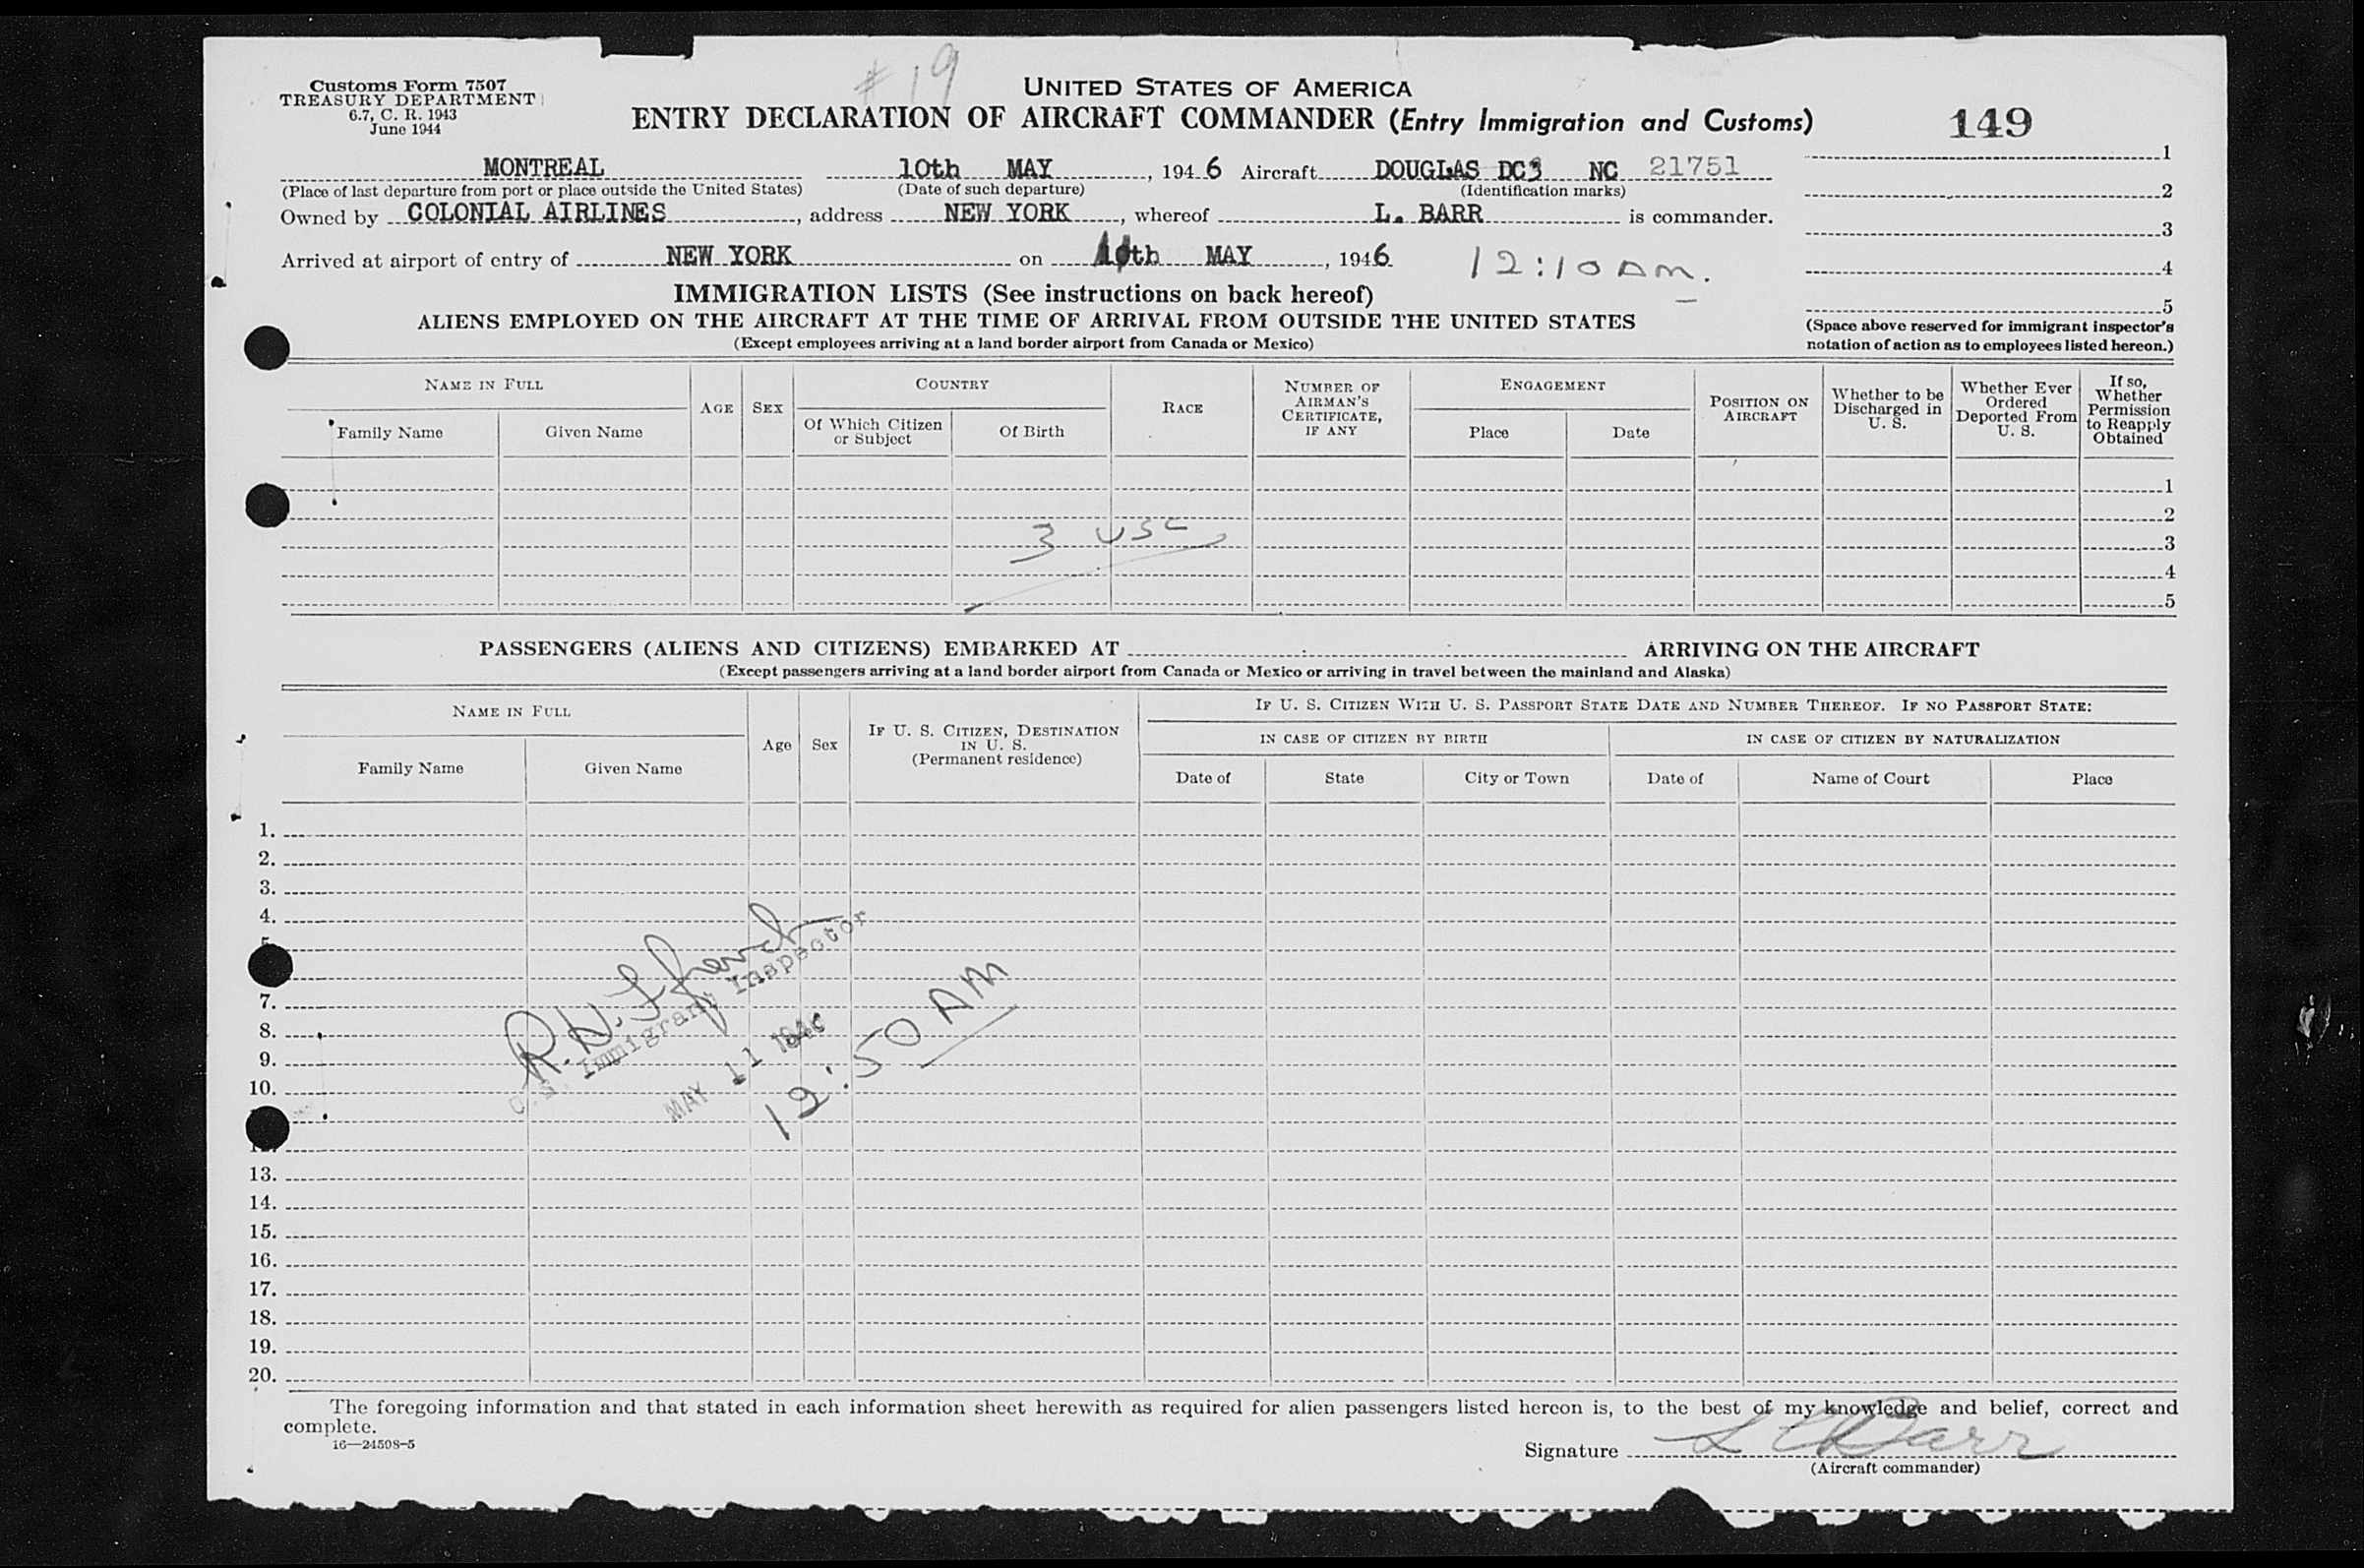 # 19
Customs Form 7507
TREASURY DEPARTMENT
6.7, C. R. 1943
June 1944
UNITED STATES OF AMERICA
ENTRY DECLARATION OF AIRCRAFT COMMANDER (Entry Immigration and Customs)
149
MONTREAL 10th MAY, 1946 Aircraft DOUGLAS DC3 NC 21751
(Place of last departure from port or place outside the United States) (Date of such departure) (Identification marks)
Owned by COLONIAL AIRLINES, address NEW YORK, whereof L. BARR is commander.
Arrived at airport of entry of NEW YORK on 11th MAY, 1946 12:10 am.
1
2
3
4
5
(Space above reserved for immigrant inspector's
notation of action as to employees listed hereon.)
IMMIGRATION LISTS (See instructions on back hereof)
ALIENS EMPLOYED ON THE AIRCRAFT AT THE TIME OF ARRIVAL FROM OUTSIDE THE UNITED STATES
(Except employees arriving at a land border airport from Canada or Mexico)
NAME IN FULL
Family Name
Given Name
AGE
SEX
COUNTRY
Of Which Citizen
or Subject
Of Birth
RACE
NUMBER OF
AIRMAN'S
CERTIFICATE,
IF ANY
ENGAGEMENT
Place
Date
POSITION ON
AIRCRAFT
Whether to be
Discharged in
U. S.
Whether Ever
Ordered
Deported From
U. S.
If so,
Whether
Permission
to Reapply
Obtained
1
2
3 USC
3
4
5
PASSENGERS (ALIENS AND CITIZENS) EMBARKED AT ARRIVING ON THE AIRCRAFT
(Except passengers arriving at a land border airport from Canada or Mexico or arriving in travel between the mainland and Alaska)
NAME IN FULL
Family Name
Given Name
Age
Sex
IF U. S. CITIZEN, DESTINATION
IN U. S.
(Permanent residence)
IF U. S. CITIZEN WITH U. S. PASSPORT STATE DATE AND NUMBER THEREOF. IF NO PASSPORT STATE:
IN CASE OF CITIZEN BY BIRTH
Date of
State
City or Town
IN CASE OF CITIZEN BY NATURALIZATION
Date of
Name of Court
Place
1.
2.
3.
4.
7.
8.
9.
10.
R. W.
U. S. Immigrant Inspector
MAY 11 1946
12:50 AM
13.
14.
15.
16.
17.
18.
19.
20.
The foregoing information and that stated in each information sheet herewith as required for alien passengers listed hereon is, to the best of my knowledge and belief, correct and
complete.
16—24598-5
Signature L Barr
(Aircraft commander)